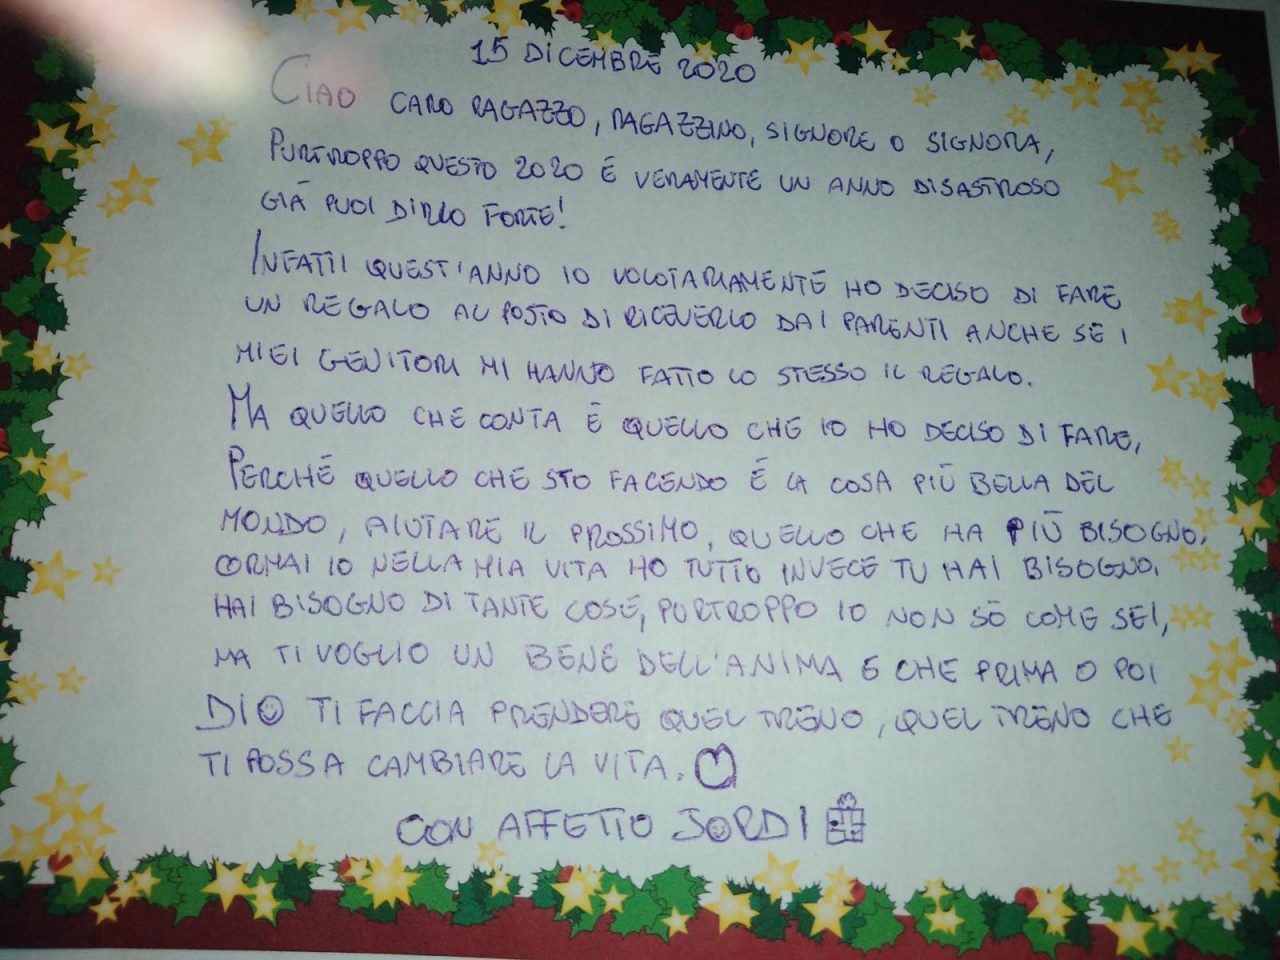 15 DICEMBRE 2020
CIAO CARO RAGAZZO, RAGAZZINO, SIGNORE O SIGNORA,
PURTROPPO QUESTO 2020 É VERAMENTE UN ANNO DISASTROSO
GIÁ PUOI DIRLO FORTE!
INFATTI QUEST'ANNO IO VOLOTARIAMENTE HO DECISO DI FARE
UN REGALO AL POSTO DI RICEVERLO DAI PARENTI ANCHE SE I
MIEI GENITORI MI HANNO FATTO LO STESSO IL REGALO.
MA QUELLO CHE CONTA É QUELLO CHE IO HO DECISO DI FARE,
PERCHÉ QUELLO CHE STO FACENDO É LA COSA PIÚ BELLA DEL
MONDO, AIUTARE IL PROSSIMO, QUELLO CHE HA PIÚ BISOGNO.
ORMAI IO NELLA MIA VITA HO TUTTO INVECE TU HAI BISOGNO,
HAI BISOGNO DI TANTE COSE, PURTROPPO IO NON SÓ COME SEI,
MA TI VOGLIO UN BENE DELL'ANIMA E CHE PRIMA O POI
DIO TI FACCIA PRENDERE QUEL TRENO, QUEL TRENO CHE
TI POSSA CAMBIARE LA VITA.
CON AFFETTO JORDI